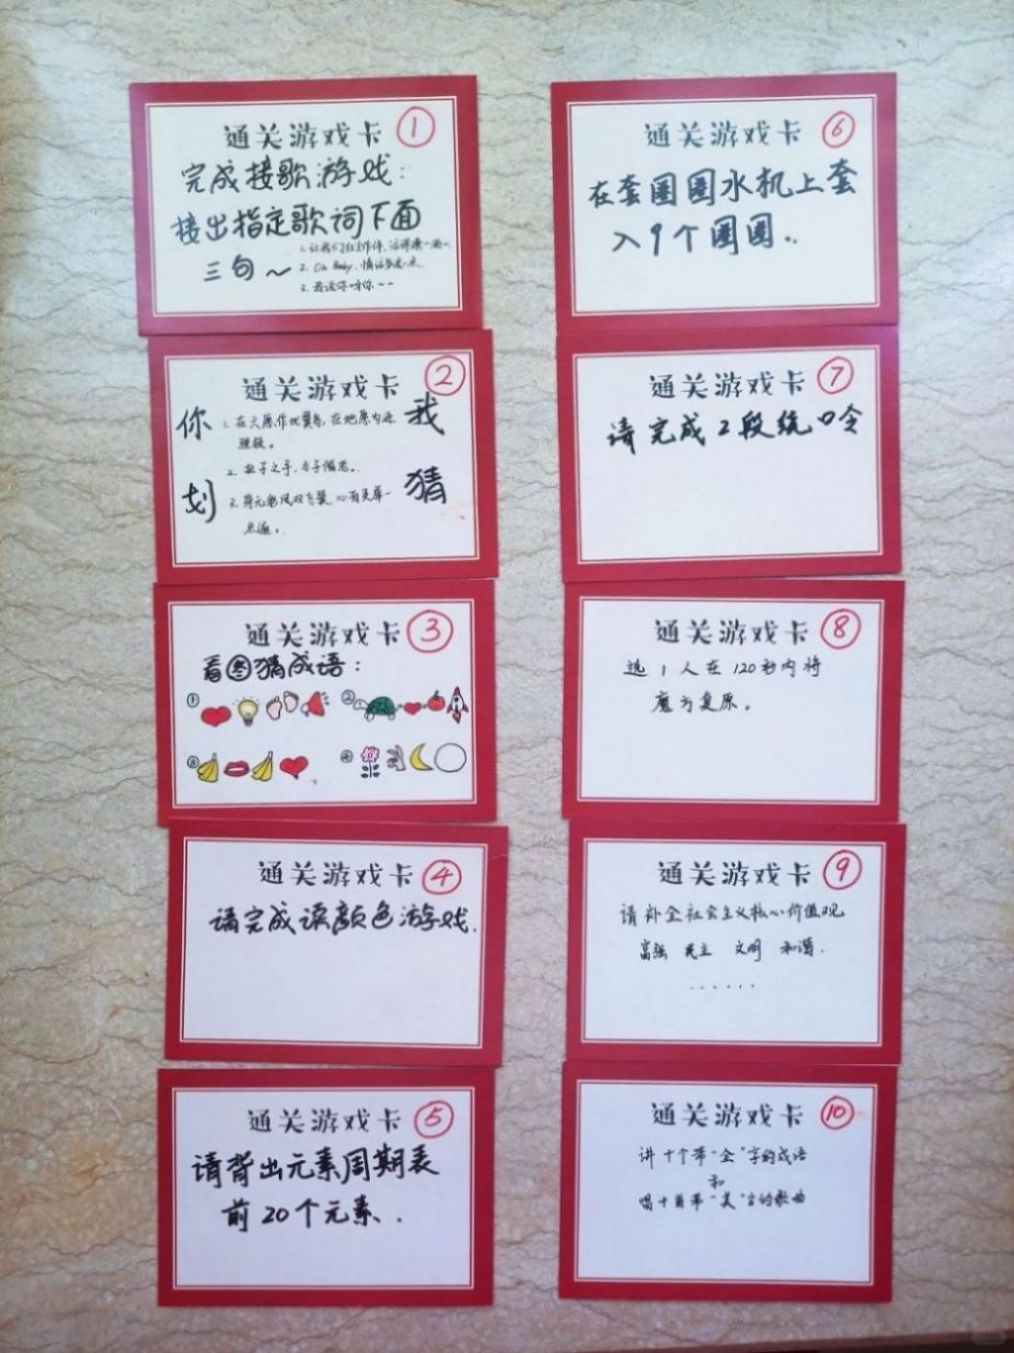 通关游戏卡 ①
完成接歌游戏:
接出指定歌词下面
三句～
1. 让我们红尘作伴,活得潇洒
2. Oh Baby, 情话多说一点
3. 若没你呀你～～
通关游戏卡 ②
你划
我猜
1. 在天愿作比翼鸟, 在地愿为连
理枝。
2. 执子之手, 与子偕老。
3. 身无彩凤双飞翼, 心有灵犀一
点通。
通关游戏卡 ③
看图猜成语:
①
②
③
④
通关游戏卡 ④
请完成读颜色游戏.
通关游戏卡 ⑤
请背出元素周期表
前20个元素..
通关游戏卡 ⑥
在套圈圈水机上套
入9个圈圈..
通关游戏卡 ⑦
请完成2段绕口令
通关游戏卡 ⑧
选1人在120秒内将
魔方复原。
通关游戏卡 ⑨
请补全社会主义核心价值观
富强 民主 文明 和谐.
......
通关游戏卡 ⑩
讲十个带"全"字的成语
和
唱十首带"美"字的歌曲